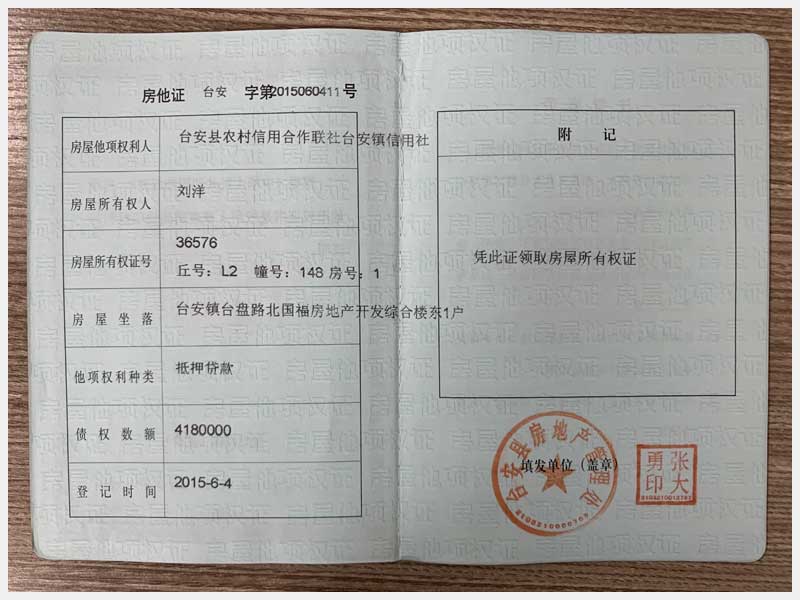 房他证 台安 字第2015060411号
房屋他项权利人 台安县农村信用合作联社台安镇信用社
房屋所有权人 刘洋
房屋所有权证号 36576
丘号：L2 幢号：148 房号：1
房屋坐落 台安镇台盘路北国福房地产开发综合楼东1户
他项权利种类 抵押贷款
债权数额 4180000
登记时间 2015-6-4
附记
凭此证领取房屋所有权证
台安县房地产管理处
填发单位（盖章）
张大勇印